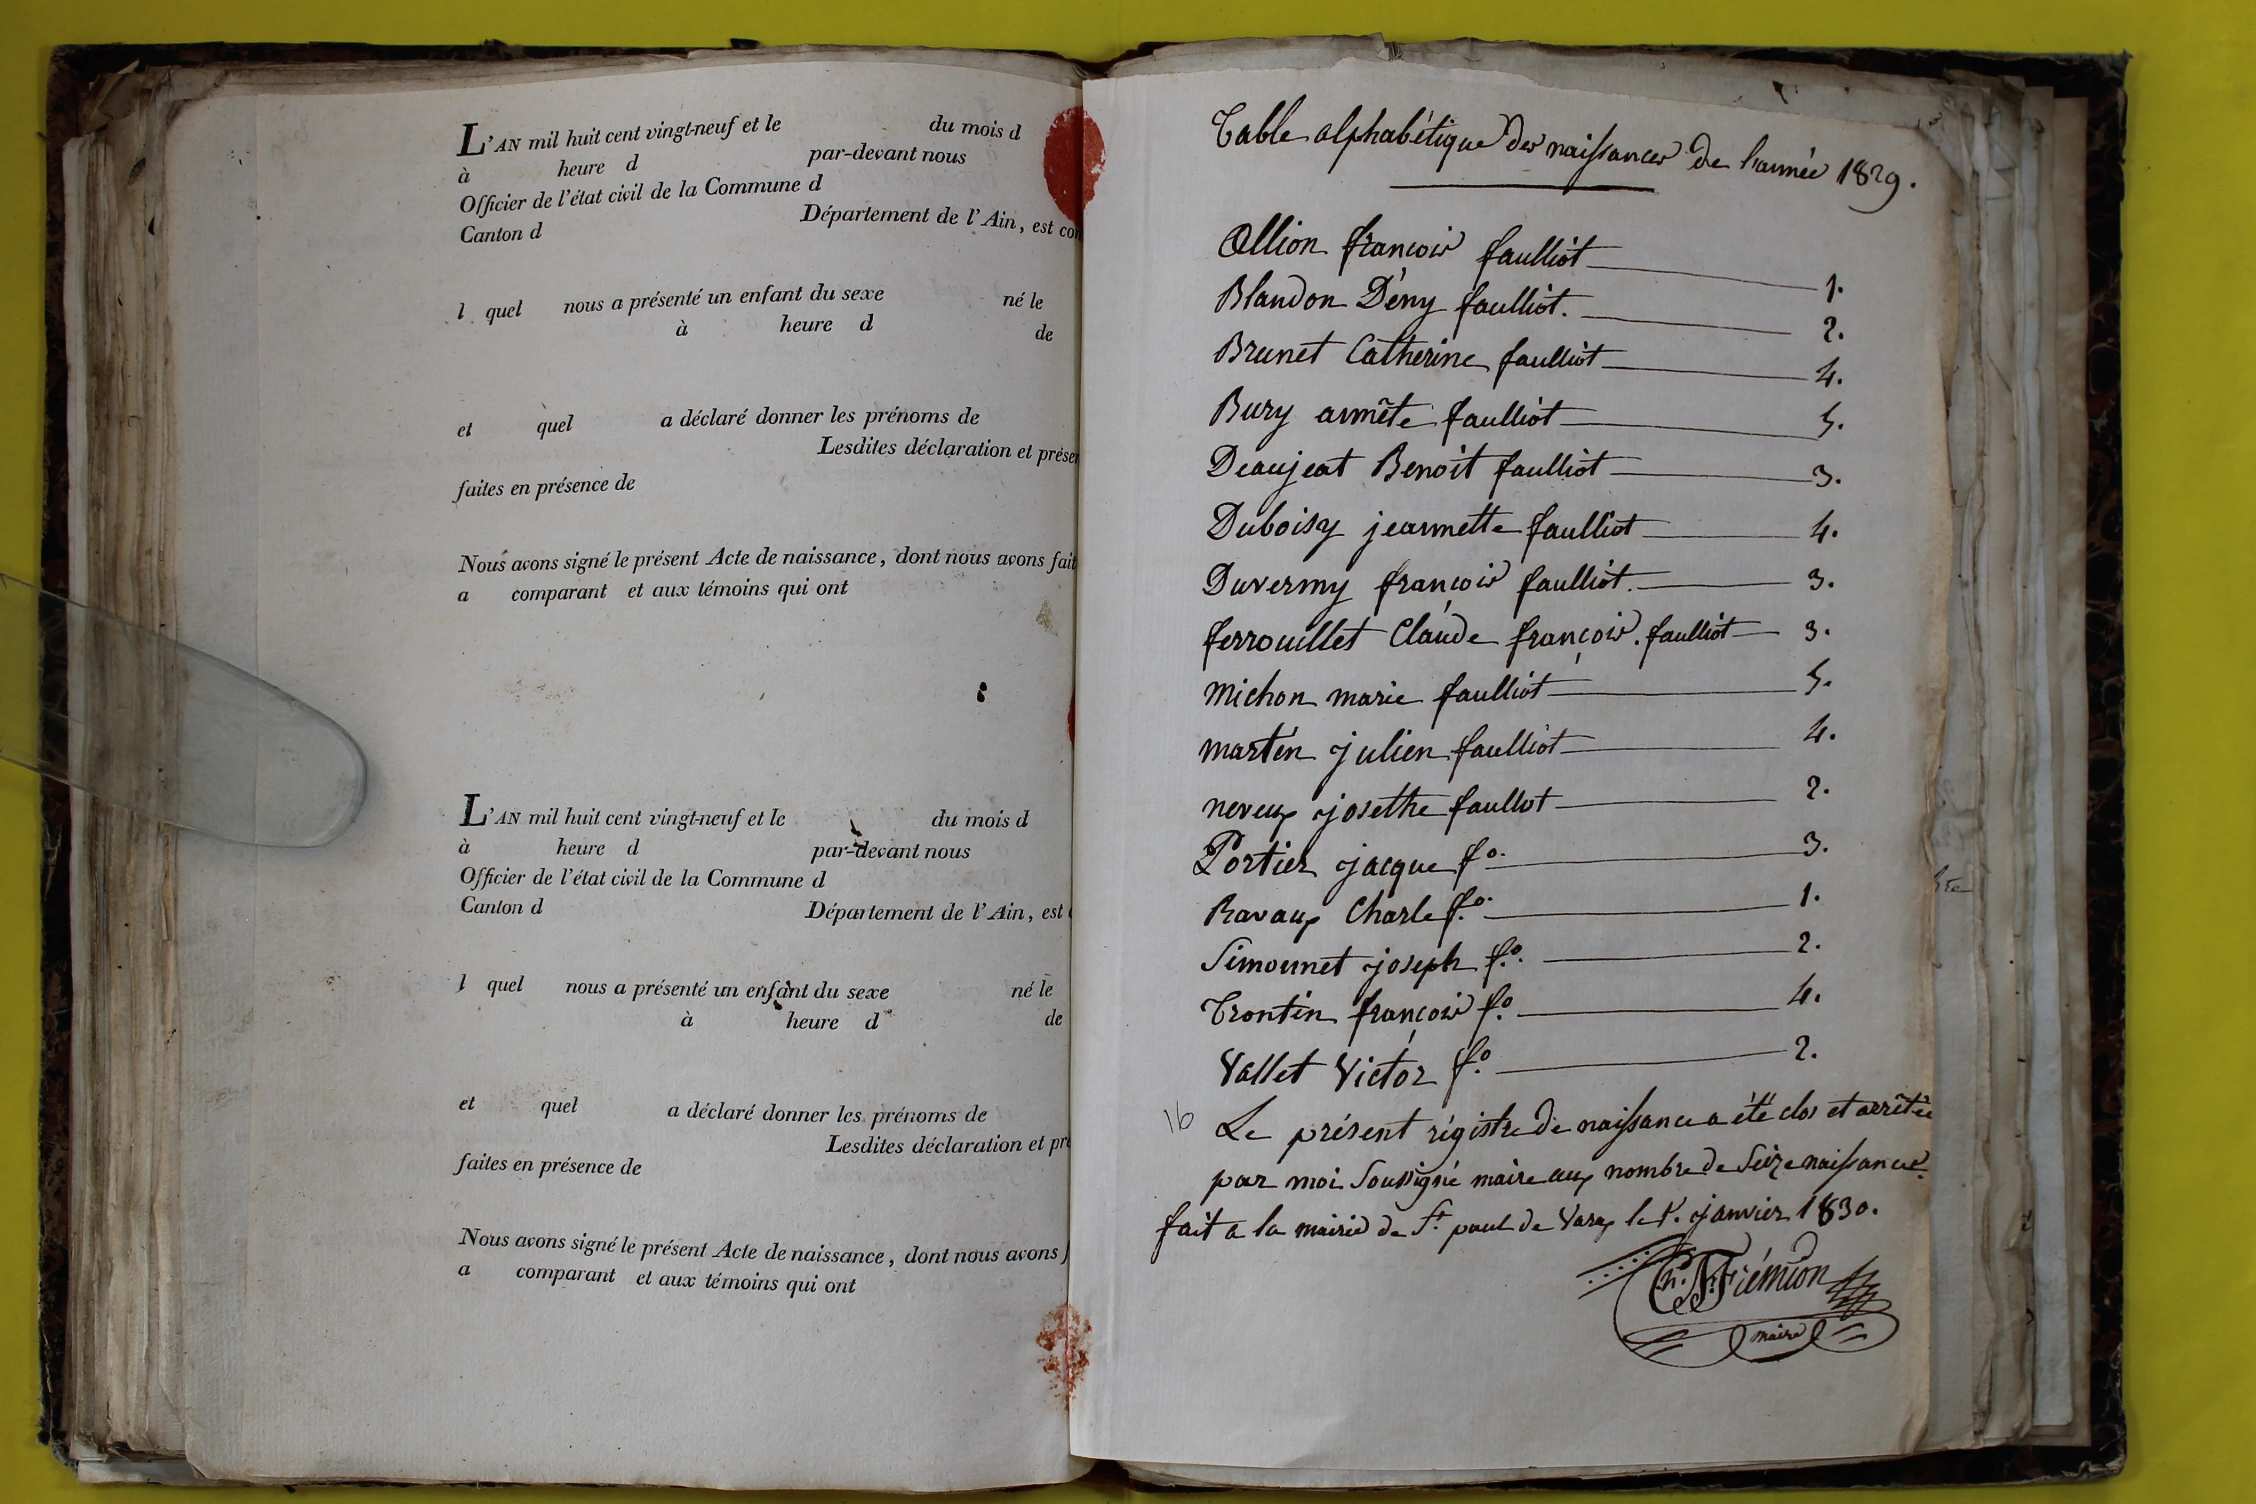 L'AN mil huit cent vingt-neuf et le du mois d
à heure d par-devant nous
Officier de l'état civil de la Commune d
Canton d Département de l'Ain, est
l quel nous a présenté un enfant du sexe né le
à heure d de
et quel a déclaré donner les prénoms de
Lesdites déclaration et
faites en présence de
Nous avons signé le présent Acte de naissance, dont nous avons fait
a comparant et aux témoins qui ont
L'AN mil huit cent vingt-neuf et le du mois d
à heure d par-devant nous
Officier de l'état civil de la Commune d
Canton d Département de l'Ain, est
l quel nous a présenté un enfant du sexe né le
à heure d de
et quel a déclaré donner les prénoms de
Lesdites déclaration et
faites en présence de
Nous avons signé le présent Acte de naissance, dont nous avons
a comparant et aux témoins qui ont
Table alphabétique des naissances de l'année 1829.
Allion françois faulliot 1.
Blandon Dény faulliot. 2.
Brunet Catherine faulliot 4.
Bury annéte faulliot 5.
Deaujeat Benoit faulliot 3.
Duboisy jeannette faulliot 4.
Duverny françois faulliot. 3.
ferrouillet Claude françois. faulliot 3.
Michon marie faulliot 5.
martin julien faulliot 4.
neveux josethe faulliot 2.
Portier jacque fo. 3.
Ravaux Charle fo. 1.
Simonnet joseph fo. 2.
Trontin françois fo. 4.
Vallet Victor fo. 2.
16 Le présent régistre de naissance a été clos et arrêtée
par moi Soussigné maire aux nombre de Seize naissance.
fait a la mairie de St. paul de Varax le 1r. janvier 1830.
maire